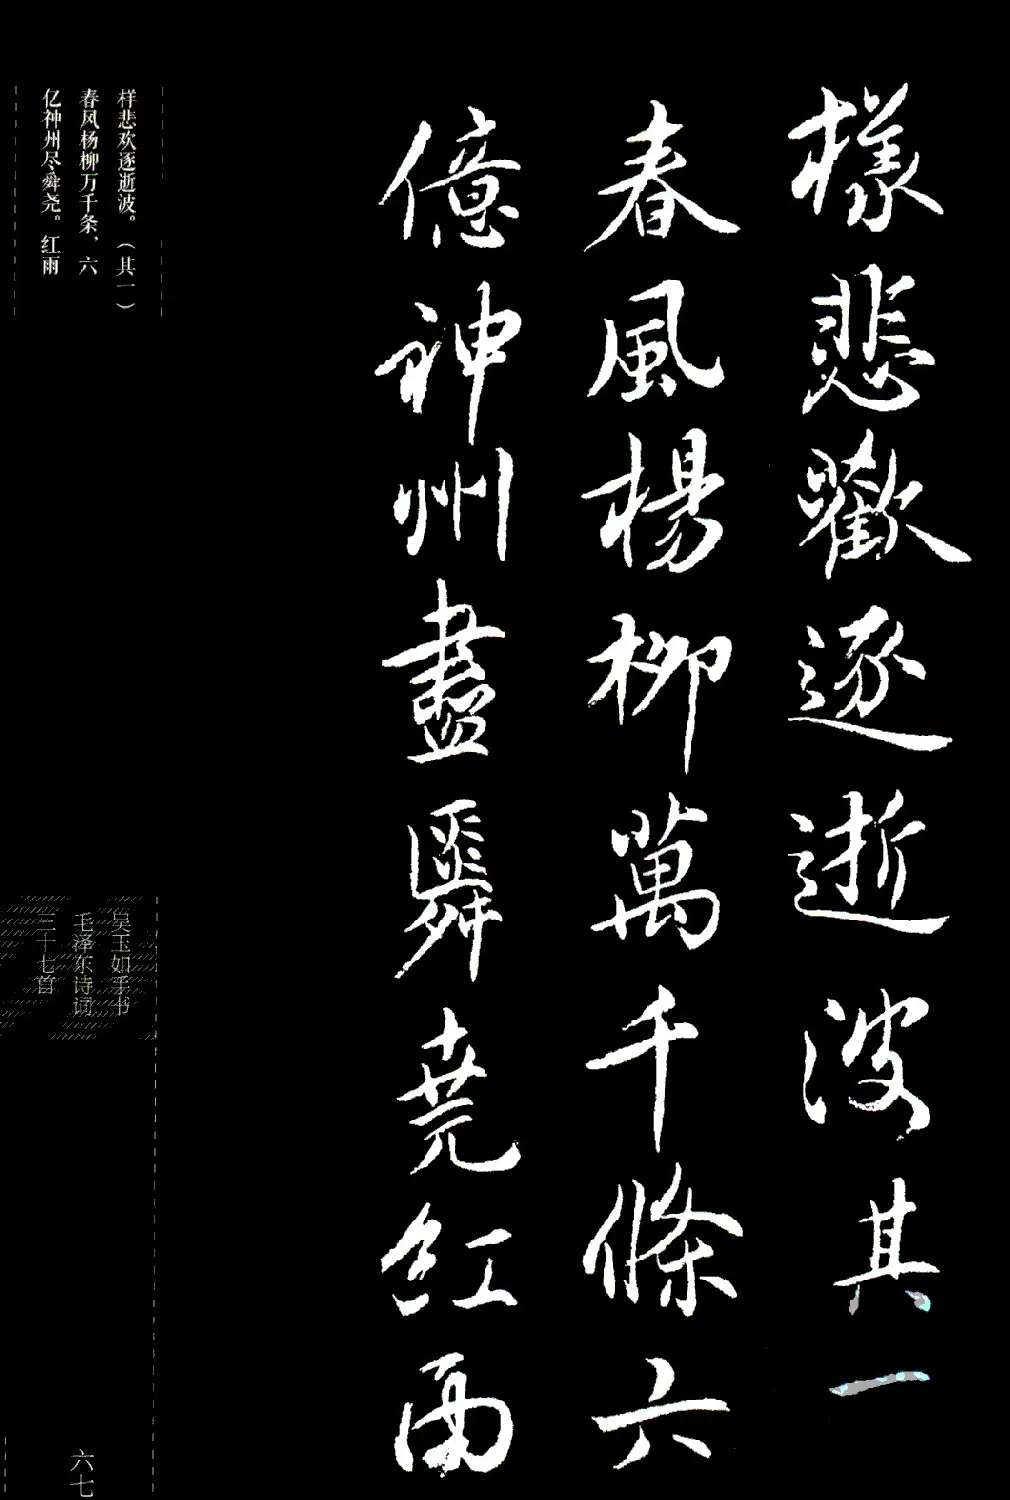 樣悲歡逐逝波其一
春風楊柳萬千條六
億神州盡舜堯紅雨
样悲欢逐逝波。（其一）
春风杨柳万千条，六
亿神州尽舜尧。红雨
吴玉如手书
毛泽东诗词
三十七首
六七